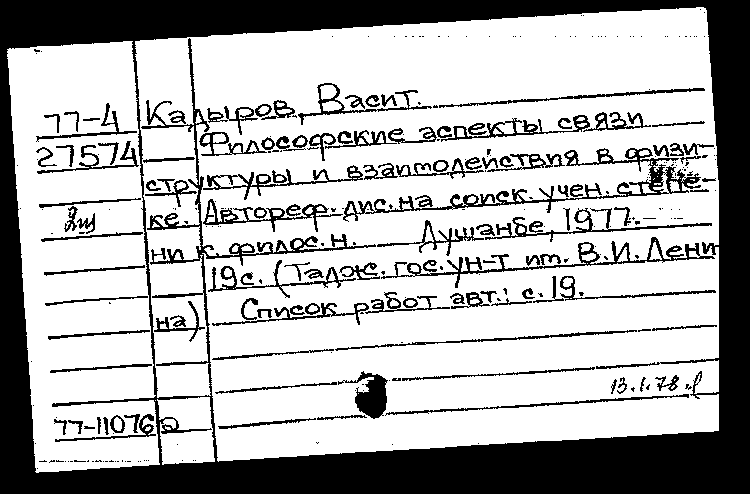 77-4 Кадыров, Васит.
27574 Философские аспекты связи
структуры и взаимодействия в физи-
ке. Автореф. дис. на соиск. учен. степе-
ни к. филос. н. Душанбе, 1977.
19 с. (Тадж. гос. ун-т им. В.И. Лени
на) Список работ авт.: с. 19.
13.1.78
77-11076